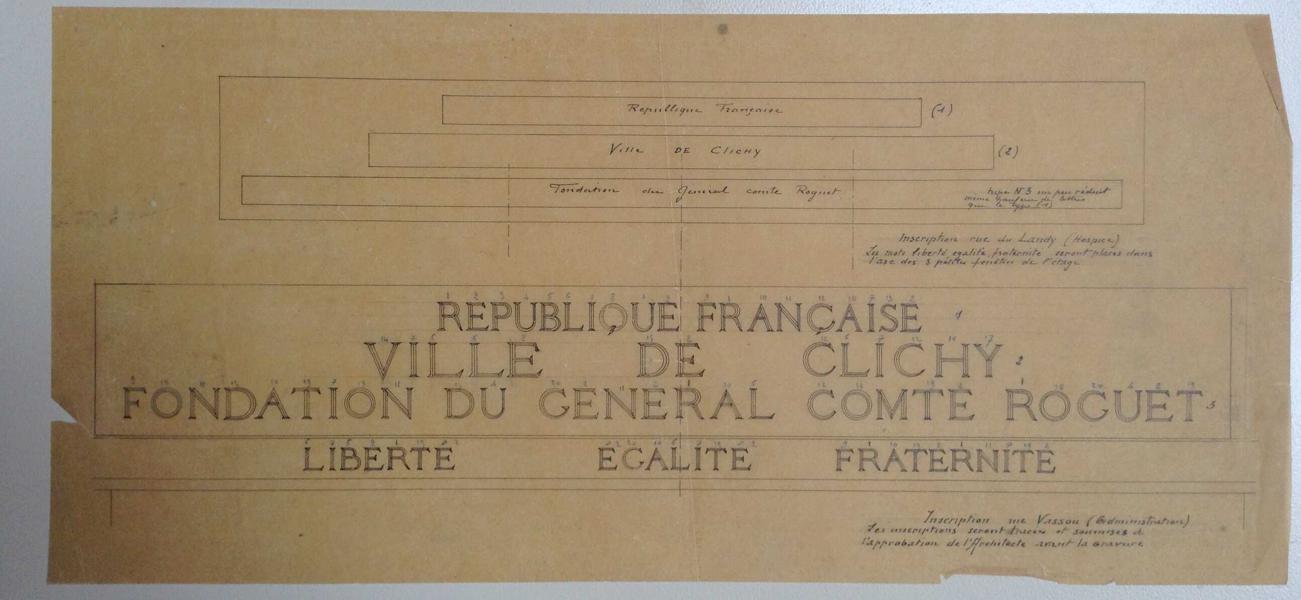 Republique Française (1)
Ville DE Clichy (2)
Fondation du General comte Roguet
type N°3 un peu réduit
même hauteur de lettres
que le type (1)
Inscription rue du Landy (Hospice)
Les mots liberté, egalité, fraternité seront placés dans
l'axe des 3 petites fenêtres de l'etage
REPUBLIQUE FRANÇAISE 1
VILLE DE CLICHY 2
FONDATION DU GENERAL COMTE ROGUET 3
LIBERTE EGALITE FRATERNITE
Inscription rue Vassou (Administration)
Les inscriptions seront tracées et soumises à
l'approbation de l'Architecte avant la Gravure